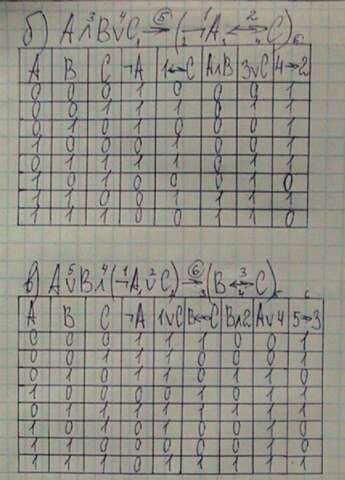 б) A∧³B∨⁴C →⑤ (¬¹A ↔² C)
A B C ¬A 1↔C A∧B 3∨C 4→2
0 0 0 1 0 0 0 1
0 0 1 1 1 0 1 1
0 1 0 1 0 0 0 1
1 0 0 0 1 0 0 1
0 1 1 1 1 0 1 1
1 0 1 0 0 0 1 0
1 1 0 0 1 1 1 1
1 1 1 0 0 1 1 0
в) A∨⁵B∧⁴(¬¹A∨²C) →⑥ (B ↔³ C)
A B C ¬A 1∨C B↔C B∧2 A∨4 5→3
0 0 0 1 1 1 0 0 1
0 0 1 1 1 0 0 0 1
0 1 0 1 1 0 1 1 0
1 0 0 0 0 1 0 1 1
0 1 1 1 1 1 1 1 1
1 0 1 0 1 0 0 1 0
1 1 0 0 0 0 0 1 0
1 1 1 0 1 1 1 1 1